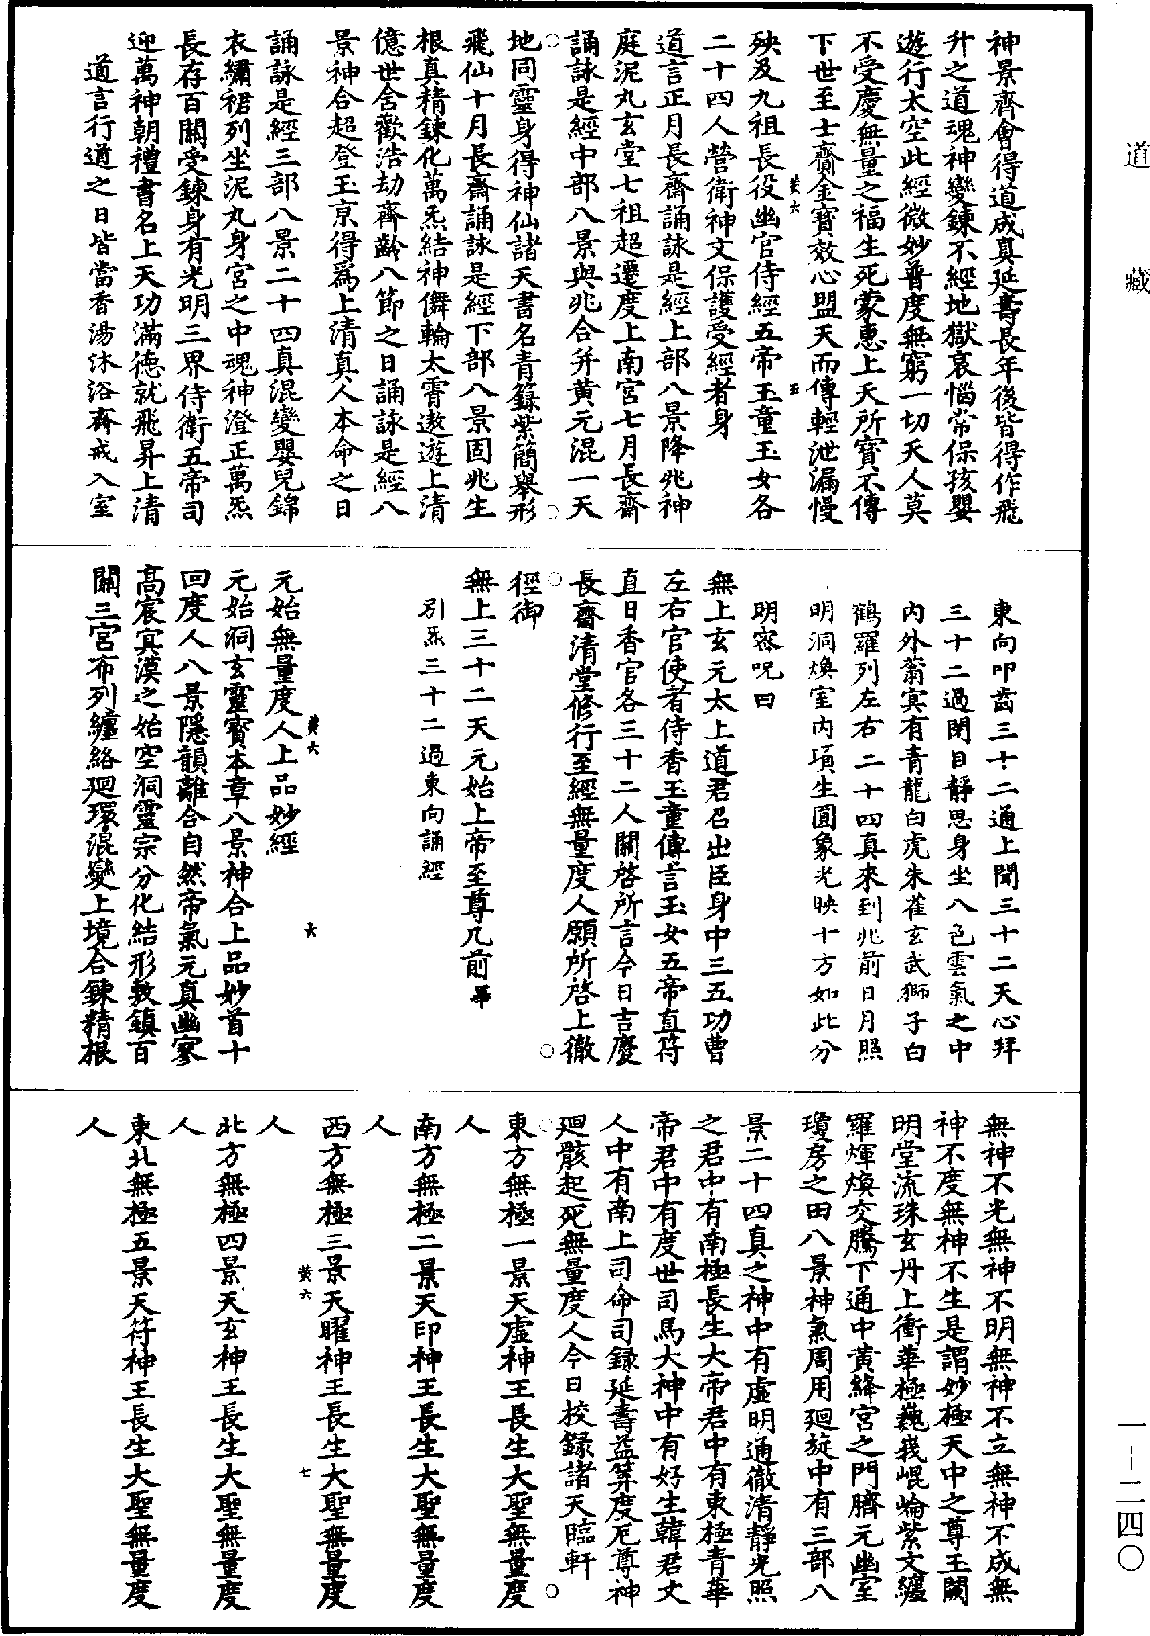 道藏
一–二四〇
神景齊會得道成真延壽長年後皆得作飛
升之道魂神變鍊不經地獄哀惱常保孩嬰
遊行太空此經微妙普度無窮一切天人莫
不受慶無量之福生死蒙惠上天所寶不傳
下世至士齎金寶效心盟天而傳輕泄漏慢
殃及九祖長役幽官侍經五帝玉童玉女各
黃六
五
二十四人營衛神文保護受經者身
道言正月長齋誦詠是經上部八景降兆神
庭泥丸玄堂七祖超遷度上南宮七月長齋
誦詠是經中部八景與兆合并黃元混一天
地同靈身得神仙諸天書名青籙紫簡舉形
飛仙十月長齋誦詠是經下部八景固兆生
根真精鍊化萬炁結神儛輪太霄遨遊上清
億世舍歡浩劫齊齡八節之日誦詠是經八
景神合超登玉京得爲上清真人本命之日
誦詠是經三部八景二十四真混變嬰兒錦
衣繡裙列坐泥丸身宮之中魂神澄正萬炁
長存百關受鍊身有光明三界侍衛五帝司
迎萬神朝禮書名上天功滿德就飛昇上清
道言行道之日皆當香湯沐浴齋戒入室
東向叩齒三十二通上聞三十二天心拜
三十二過閉目靜思身坐八色雲氣之中
內外蓊冥有青龍白虎朱雀玄武獅子白
鶴羅列左右二十四真來到兆前日月照
明洞煥室內項生圓象光映十方如此分
明密呪曰
無上玄元太上道君召出臣身中三五功曹
左右官使者侍香玉童傳言玉女五帝直符
直日香官各三十二人關啓所言今日吉慶
長齋清堂修行至經無量度人願所啓上徹
徑御
無上三十二天元始上帝至尊几前畢
引炁三十二過東向誦經
元始無量度人上品妙經
黃六
六
元始洞玄靈寶本章八景神合上品妙首十
回度人八景隱韻離合自然帝氣元真幽寥
高宸㝠漠之始空洞靈宗分化結形敷鎮百
關三宮布列纏絡廻環混變上境合鍊精根
無神不光無神不明無神不立無神不成無
神不度無神不生是謂妙極天中之尊玉闕
明堂流珠玄丹上衝華極巍峩崐崘紫文纏
羅煇煥交騰下通中黃絳宮之門臍元幽室
瓊房之田八景神氣周用廻旋中有三部八
景二十四真之神中有虛明通徹清靜光照
之君中有南極長生大帝君中有東極青華
帝君中有度世司馬大神中有好生韓君丈
人中有南上司命司錄延壽益筭度厄尊神
廻骸起死無量度人今日校錄諸天臨軒
東方無極一景天虛神王長生大聖無量度
人
南方無極二景天印神王長生大聖無量度
人
西方無極三景天曜神王長生大聖無量度
黃六
七
人
北方無極四景天玄神王長生大聖無量度
人
東北無極五景天符神王長生大聖無量度
人